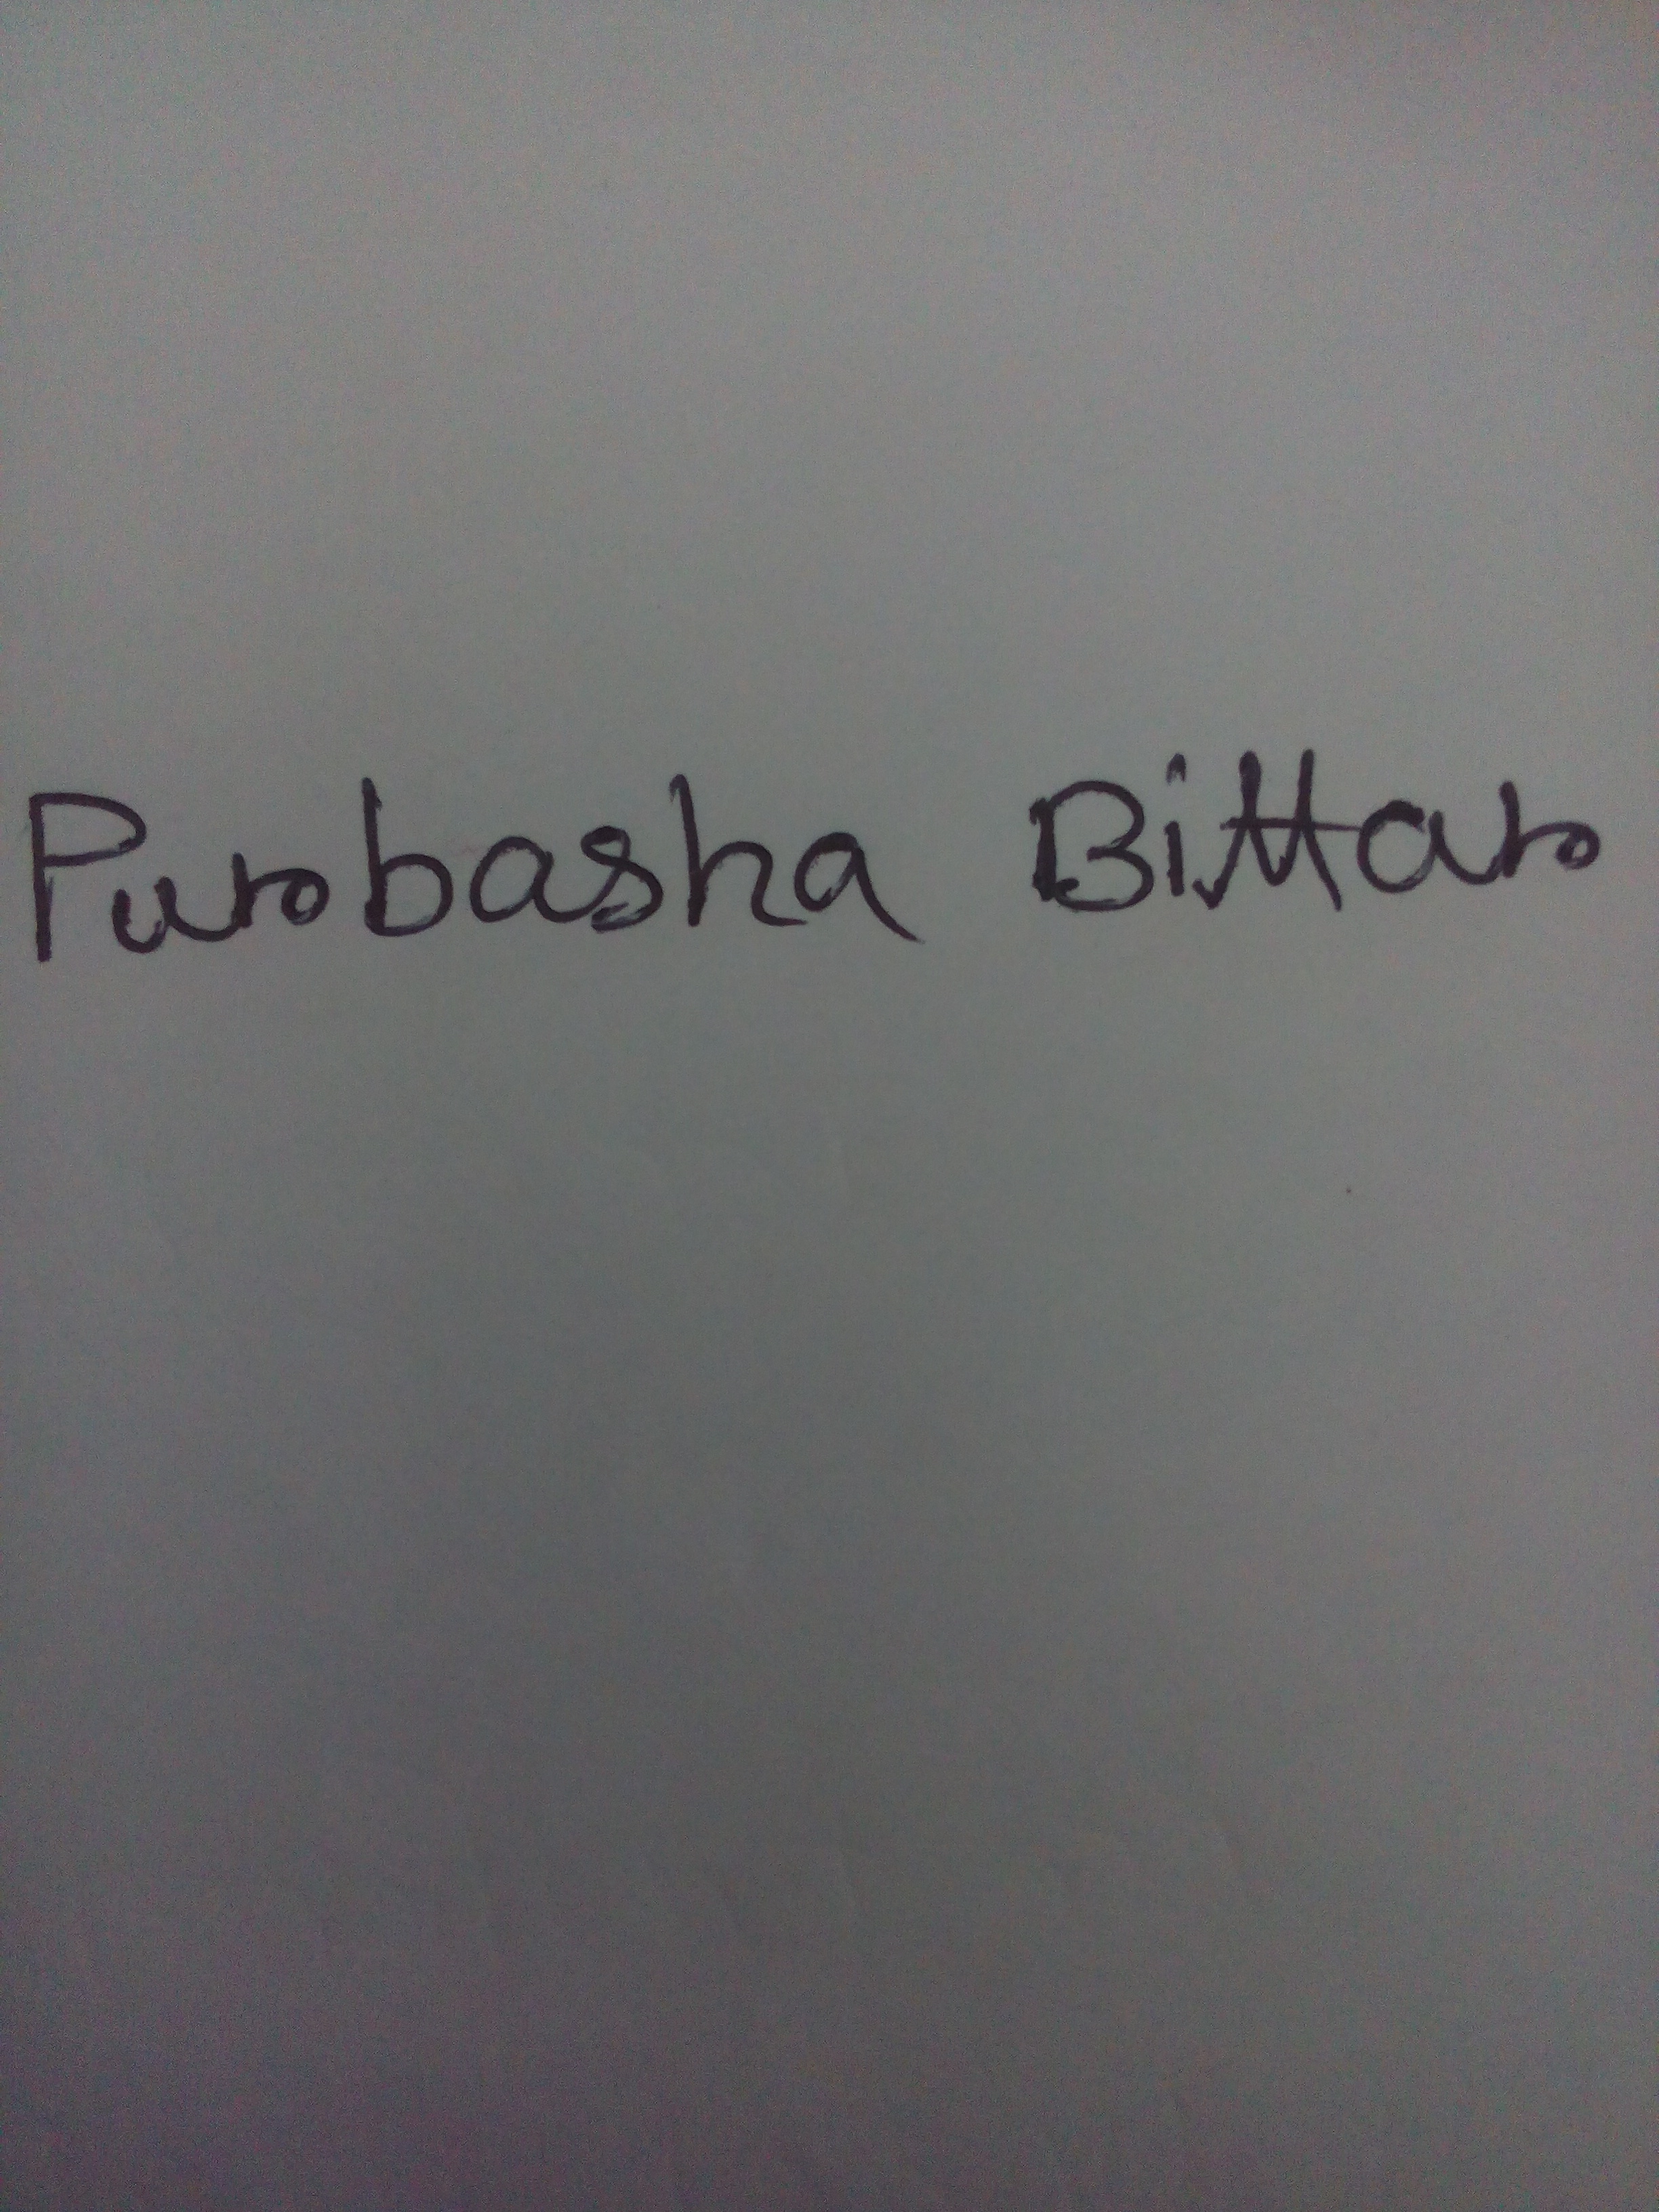 Purbasha Bittar